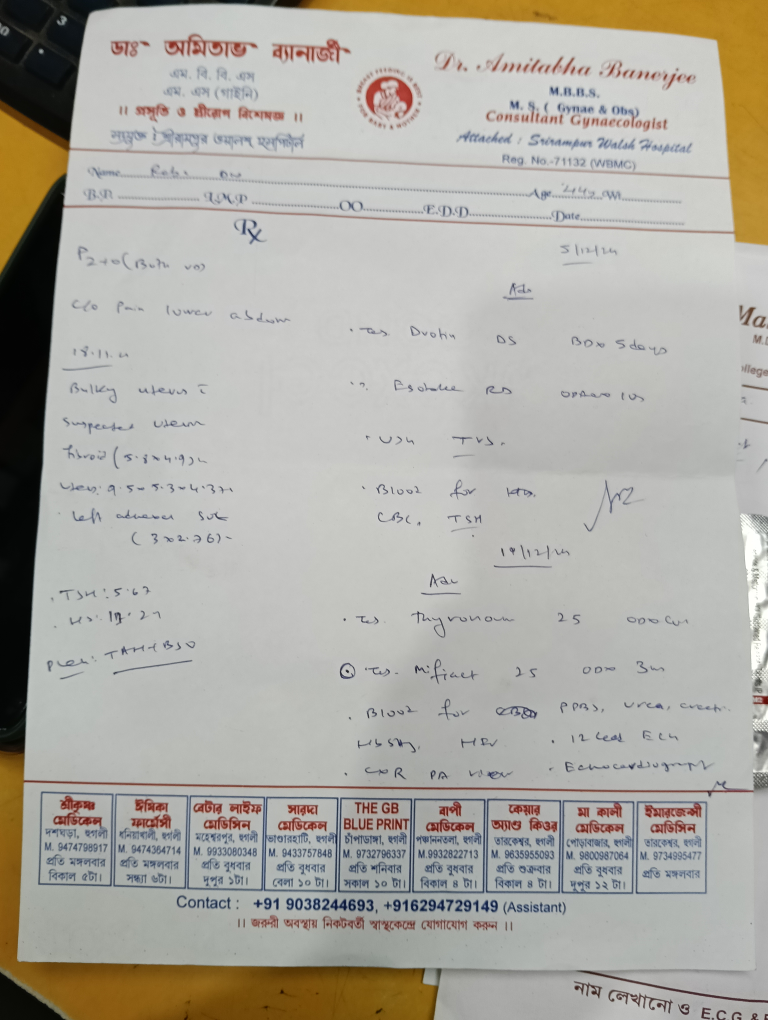 ডাঃ অমিতাভ ব্যানার্জী
এম. বি. বি. এস
এম. এস (গাইনি)
।। প্রসূতি ও স্ত্রীরোগ বিশেষজ্ঞ ।।
সংযুক্ত : শ্রীরামপুর ওয়ালশ হসপিটাল
Dr. Amitabha Banerjee
M.B.B.S.
M. S. ( Gynae & Obs)
Consultant Gynaecologist
Attached : Srirampur Walsh Hospital
Reg. No.-71132 (WBMC)
Name
Age 44y Wt.
B.P. L.M.P. OO E.D.D. Date
Rx
P2+0 (Both VD)
C/o Pain lower abdomen
Bulky uterus
suspected
fibroid (5.3×4.9)
9.5 × 5.3 × 4.3
Left
(3×2.76)
TSH: 5.67
Plan: TAH+BSO
5/12/24
Adv
Tab. Drotin DS BD × 5 days
RD
USG TVS.
Blood for
CBC, TSH
19/12/24
Adv
Tab. Thyronorm 25
Tab. Mifiact 25 OD × 3m
Blood for PPBS, Urea, creat.
HBsAg, HIV 12 lead ECG
CXR PA view Echocardiography
শ্রীকৃষ্ণ মেডিকেল
দশঘড়া, হুগলী
M. 9474798917
প্রতি মঙ্গলবার
বিকাল ৫টা।
ঈষিকা ফার্মেসী
ধনিয়াখালী, হুগলী
M. 9474364714
প্রতি মঙ্গলবার
সন্ধ্যা ৬টা।
বেটার লাইফ মেডিসিন
মহেশ্বরপুর, হুগলী
M. 9933080348
প্রতি বুধবার
দুপুর ১টা।
সারদা মেডিকেল
ভাণ্ডারহাটি, হুগলী
M. 9433757848
প্রতি বুধবার
বেলা ১০ টা।
THE GB BLUE PRINT
চাঁপাডাঙ্গা, হুগলী
M. 9732796337
প্রতি শনিবার
সকাল ১০ টা।
বাপী মেডিকেল
পঞ্চাননতলা, হুগলী
M.9932822713
প্রতি বুধবার
বিকাল ৪ টা।
কেয়ার অ্যাণ্ড কিওর
তারকেশ্বর, হুগলী
M. 9635955093
প্রতি শুক্রবার
বিকাল ৪ টা।
মা কালী মেডিকেল
পোড়াবাজার, হুগলী
M. 9800987064
প্রতি বুধবার
দুপুর ১২ টা।
ইমারজেন্সী মেডিসিন
তারকেশ্বর, হুগলী
M. 9734995477
প্রতি মঙ্গলবার
Contact : +91 9038244693, +916294729149 (Assistant)
।। জরুরী অবস্থায় নিকটবর্তী স্বাস্থ্যকেন্দ্রে যোগাযোগ করুন ।।
নাম লেখানো ও E.C.G &